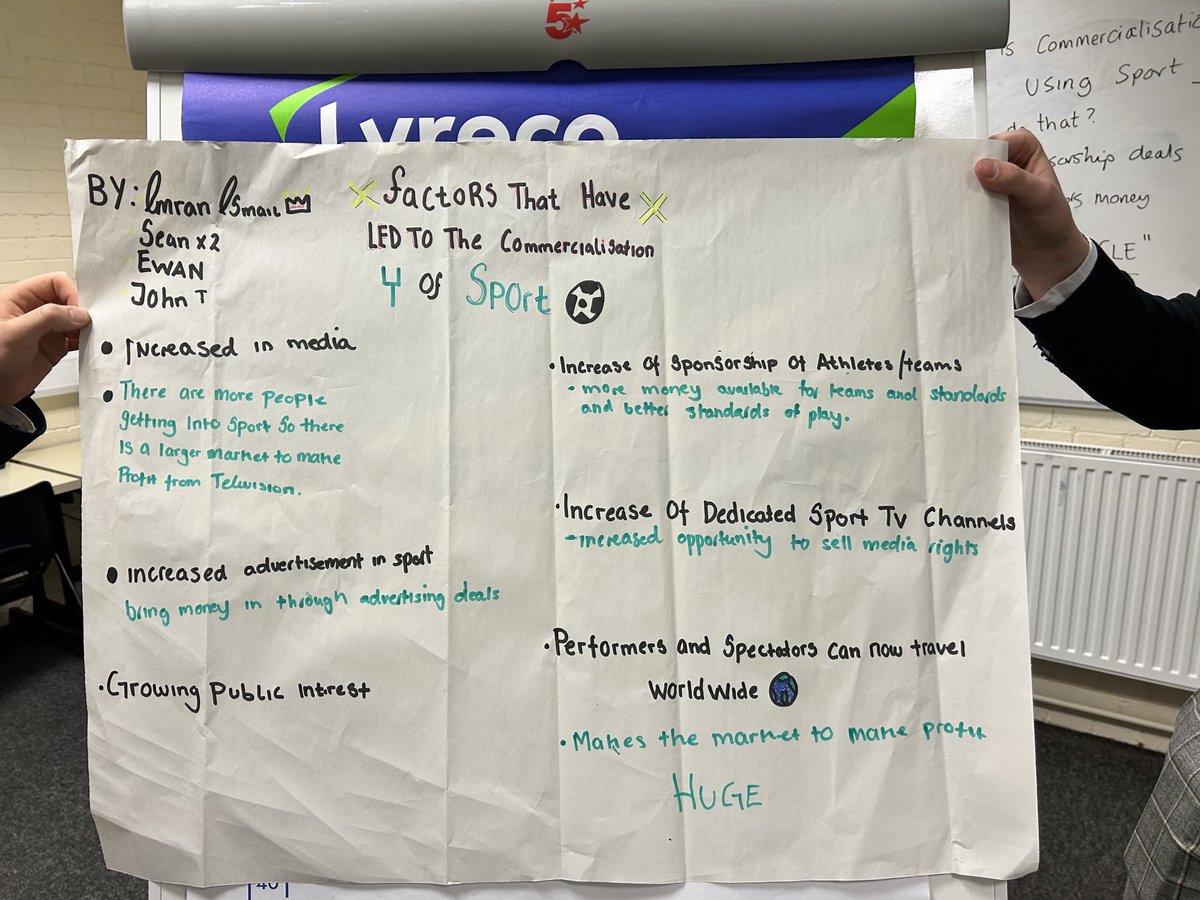 5
Lyreco
is Commercialisatio
Using Sport
do that?
sorship deals
money
CLE"
BY: Imran Ismail
Sean x2
EWAN
John T
Factors That Have
LED TO The Commercialisation
4 of Sport
Increased in media
There are more people
getting Into Sport So there
Is a larger market to make
Profit from Television.
increased advertisement in sport
bring money in through advertising deals
Growing Public Intrest
Increase Of Sponsorship Of Athletes/teams
- more money available for teams and standards
and better standards of play.
Increase Of Dedicated Sport Tv Channels
- increased opportunity to sell media rights
Performers and Spectators can now travel
WorldWide
Makes the market to make profit
HUGE
40